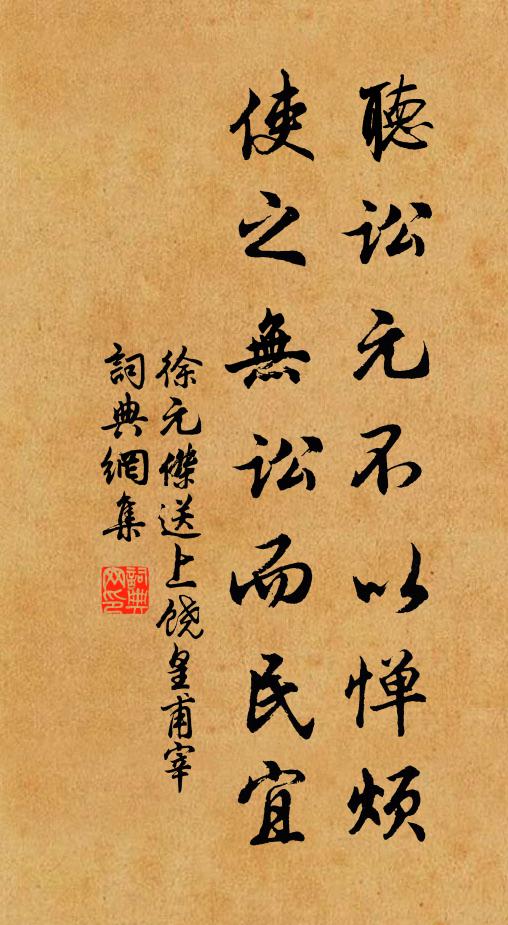 聽訟元不以惮烦
使之無訟而民宜
徐元傑送上饶皇甫宰
詞典網集
詞典网印